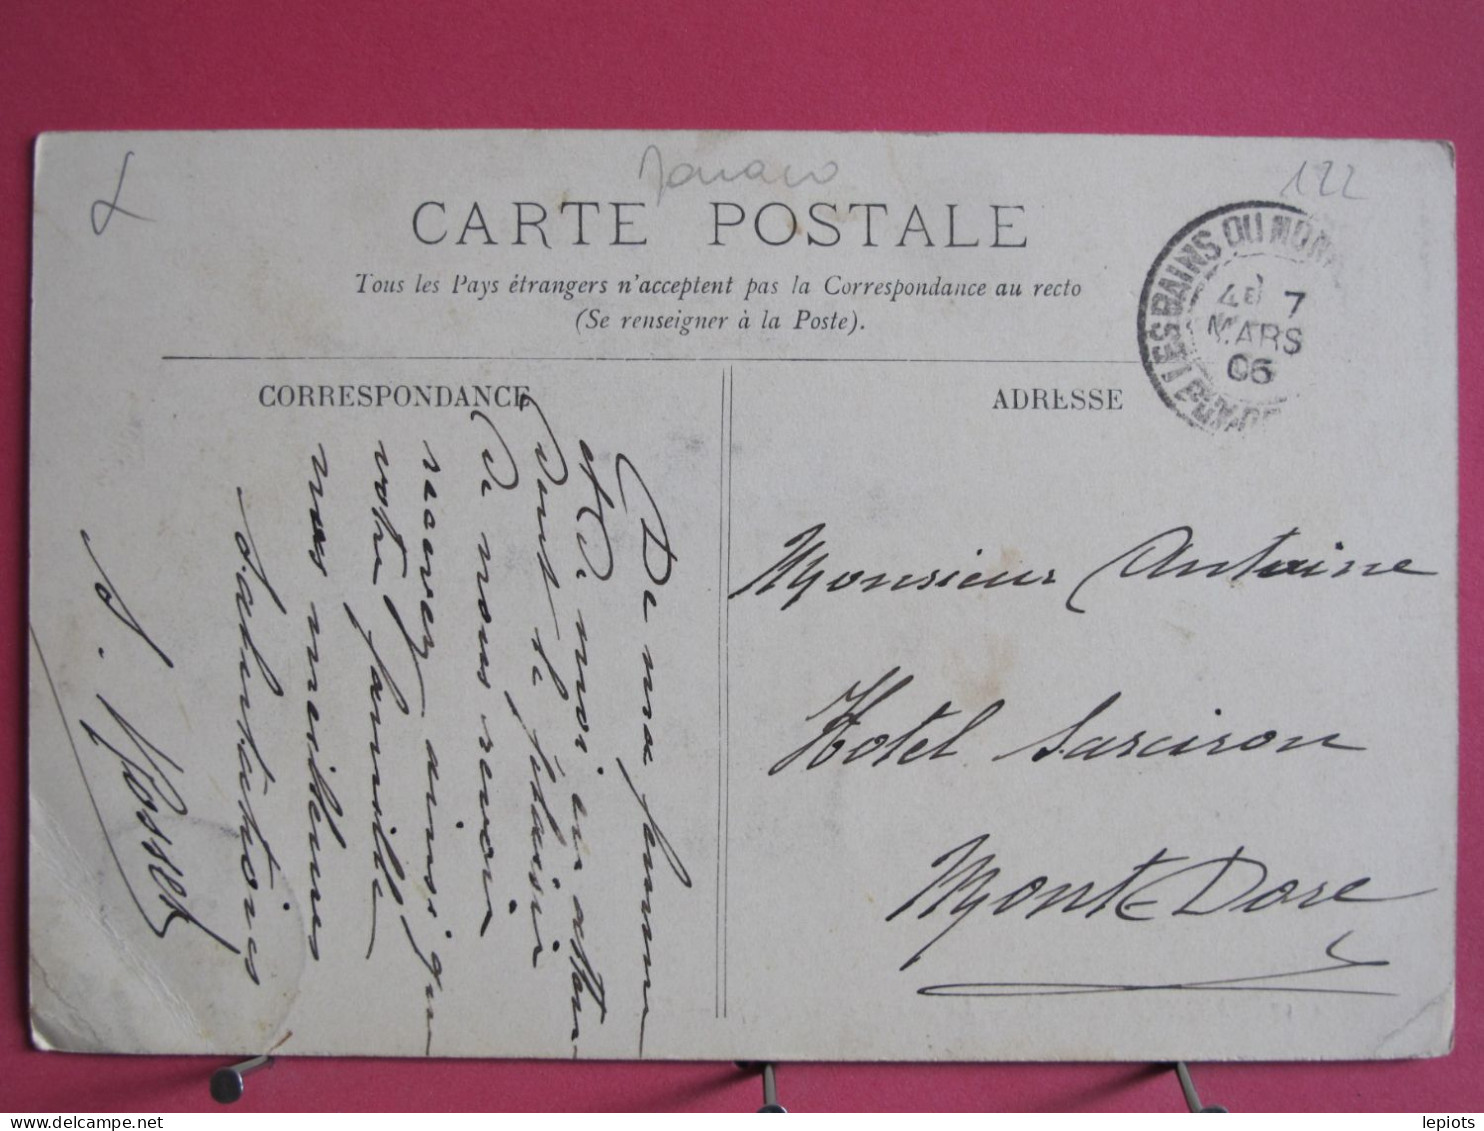 Monaco
122
CARTE POSTALE
Tous les Pays étrangers n'acceptent pas la Correspondance au recto
(Se renseigner à la Poste).
LES BAINS DU MON
7
MARS
06
CORRESPONDANCE
De ma femme
et de moi en atten
dant le plaisir
de vous revoir
recevez ainsi que
votre famille
nos meilleures
Salutations
ADRESSE
Monsieur Antoine
Hotel Sarciron
Mont-Dore
lepiots